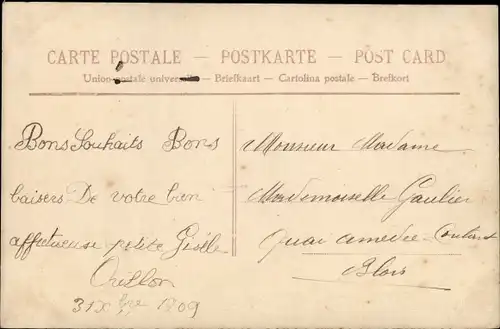 CARTE POSTALE — POSTKARTE — POST CARD
Union postale universelle — Briefkaart — Cartolina postale — Brefkort
Bons Souhaits Bons
baisers De votre bien
affectueuse petite Gisèle
Crillon
31 Xbre 1909
Monsieur Madame
Mademoiselle Gaulier
Quai amédée Contant
Blois